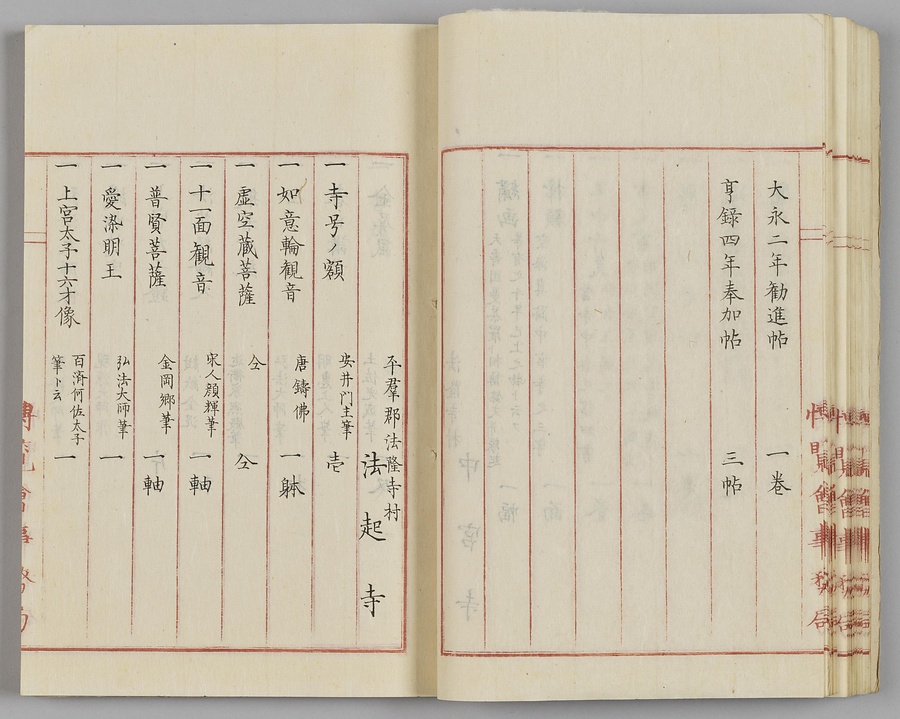 大永二年勧進帖 一卷
亨録四年奉加帖 三帖
平羣郡法隆寺村
法起寺
一 寺号ノ額 安井門主筆 壱
一 如意輪観音 唐鋳佛 一躰
一 虚空蔵菩薩 仝 仝
一 十一面観音 宋人顔輝筆 一軸
一 普賢菩薩 金岡郷筆 一軸
一 愛染明王 弘法大師筆 一
一 上宮太子十六才像 百済何佐太子筆ト云 一
博覧會事務局